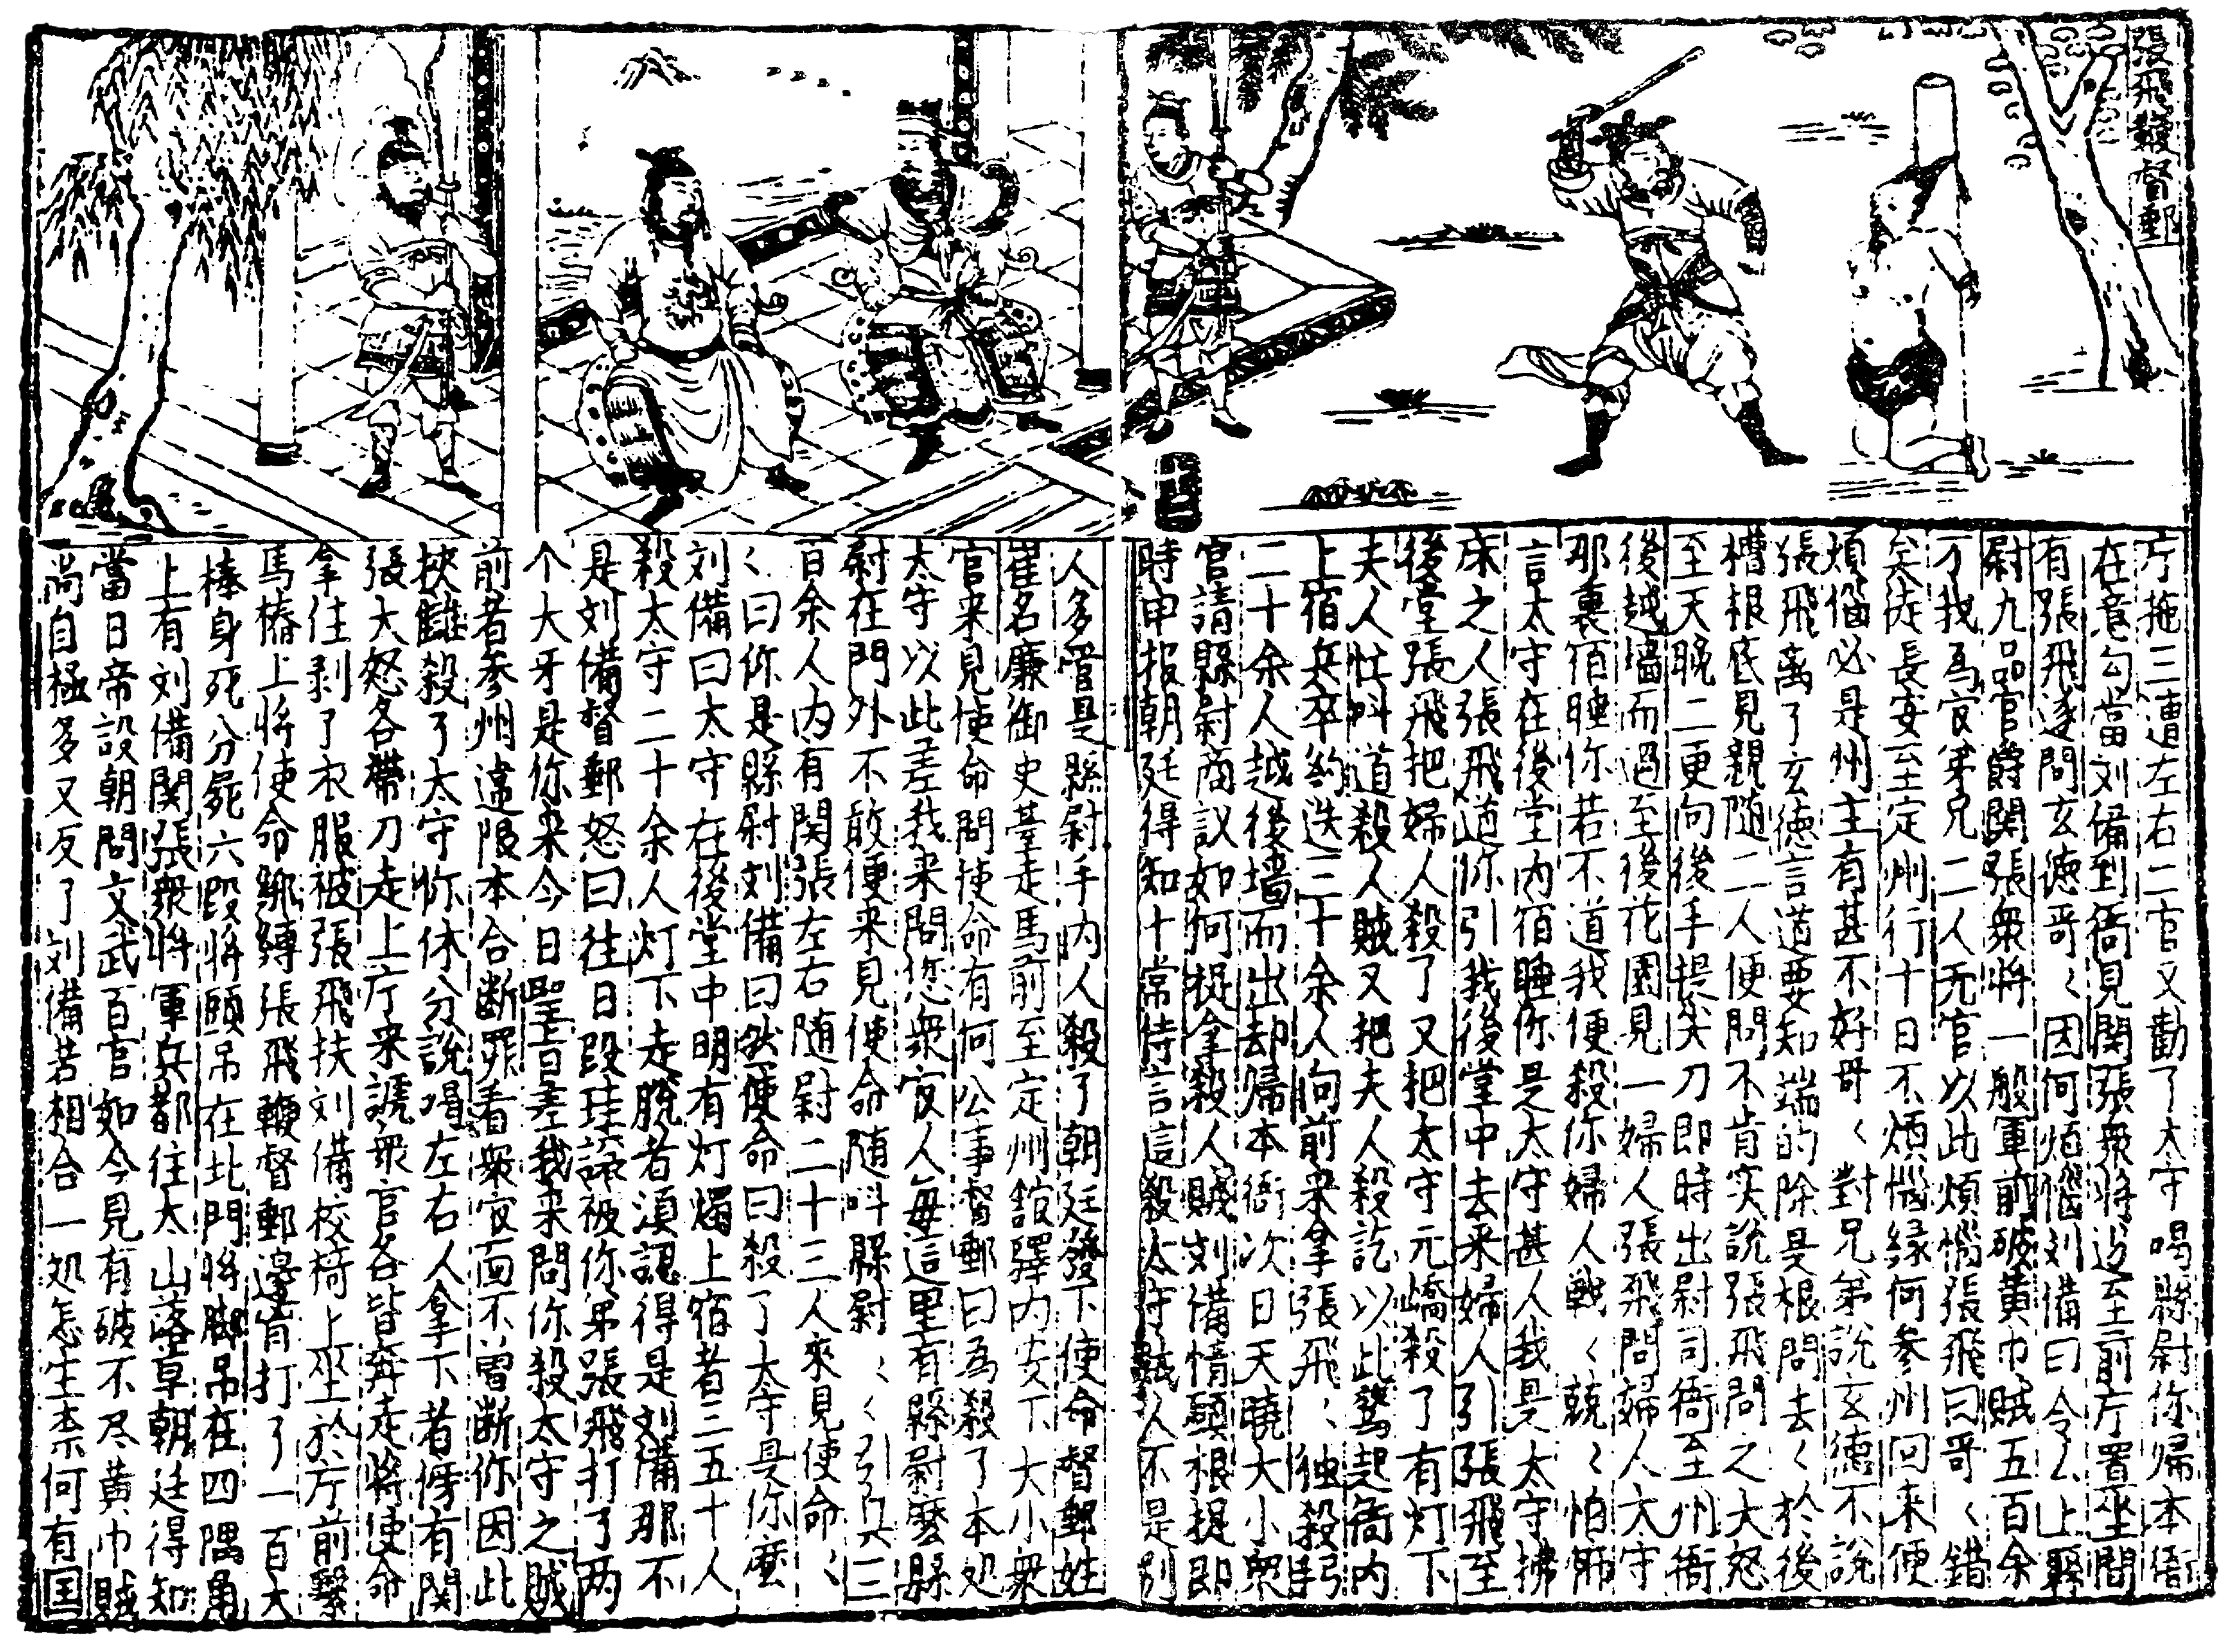 張飛鞭督郵
庁拖三遭左右二官又勸了太守喝縣尉你歸本衙
在意勾當刘備到衙見関張衆將造至前庁置坐間
有張飛遂問玄德哥〻因何煩惱刘備曰令么上縣
尉九品官爵関張衆將一般軍前破黄巾賊五百余
万我為官弟兄二人无官以此煩惱張飛曰哥〻錯
矣從長安至定州行十日不煩惱緣何参州回来便
煩惱必是州主有甚不好哥〻對兄弟說玄德不說
張飛离了玄德言道要知端的除是根問去〻於後
槽根底見親随二人便問不肯实說張飛問之大怒
至天晚二更向後手提尖刀即時出尉司衙至州衙
後越墻而過至後花園見一婦人張飛問婦人太守
那裏宿睡你若不道我便殺你婦人戰〻兢〻怕怖
言太守在後堂内宿睡你是太守甚人我是太守拂
床之人張飛道你引我後堂中去来婦人引張飛至
後堂張飛把婦人殺了又把太守元嶠殺了有灯下
夫人忙呌道殺人賊又把夫人殺訖以此驚起衙内
上宿兵卒約迭三十余人向前来拿張飛〻独殺弓手
二十余人越後墻而出却帰本衙次日天曉大小衆
官請縣尉商議如何捉拿殺人賊刘備情愿根捉即
時申报朝廷得知十常侍言這殺太守賊人不是别
人多管是縣尉手内人殺了朝廷發下使命督郵姓
崔名廉御史臺走馬前至定州舘驛内安下大小衆
官来見使命問使命有何公事督郵曰為殺了本処
太守以此差我来問您衆官人每這里有縣尉麽縣
尉在門外不敢便来見使命随呌縣尉〻〻引兵三
百余人内有関張左右随尉二十三人來見使命〻
〻曰你是縣尉刘備曰然使命曰殺了太守是你麽
刘備曰太守在後堂中明有灯燭上宿者三五十人
殺太守二十余人灯下走脫者須認得是刘備那不
是刘備督郵怒曰往日段珪讓被你弟張飛打了两
个大牙是你来今日聖旨差我来問你殺太守之賊
前者参州違限本合断罪看衆官面不曾断你因此
挾讎殺了太守你休分說喝左右人拿下者傍有関
張大怒各帶刀走上庁来諕衆官各皆奔走將使命
拿住剥了衣服被張飛扶刘備校椅上坐於庁前繫
馬樁上將使命綁縛張飛鞭督郵邊胷打了一百大
棒身死分屍六段將頭吊在北門將脚吊在四隅角
上有刘備関張衆將軍兵都往太山落草朝廷得知
當日帝設朝問文武百官如今見有破不尽黄巾賊
尚自極多又反了刘備若相合一処怎生柰何有囯